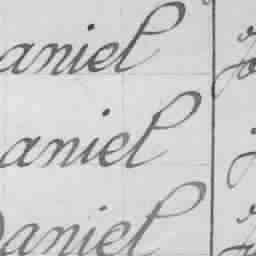 aniel
aniel
Daniel